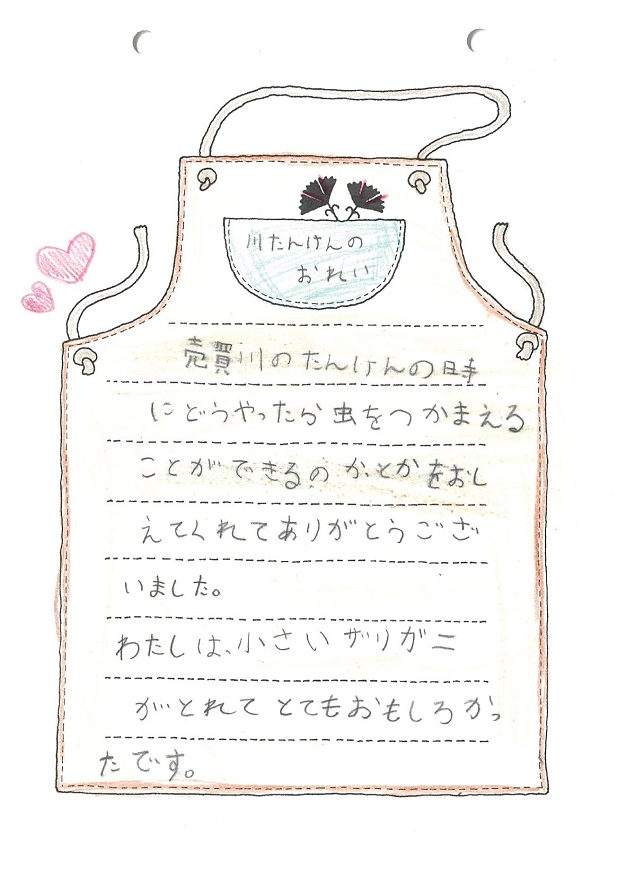 川たんけんの
おれい
売買川のたんけんの時
にどうやったら虫をつかまえる
ことができるのか、とかをおし
えてくれてありがとうござ
いました。
わたしは、小さいザリガニ
がとれてとてもおもしろかっ
たです。